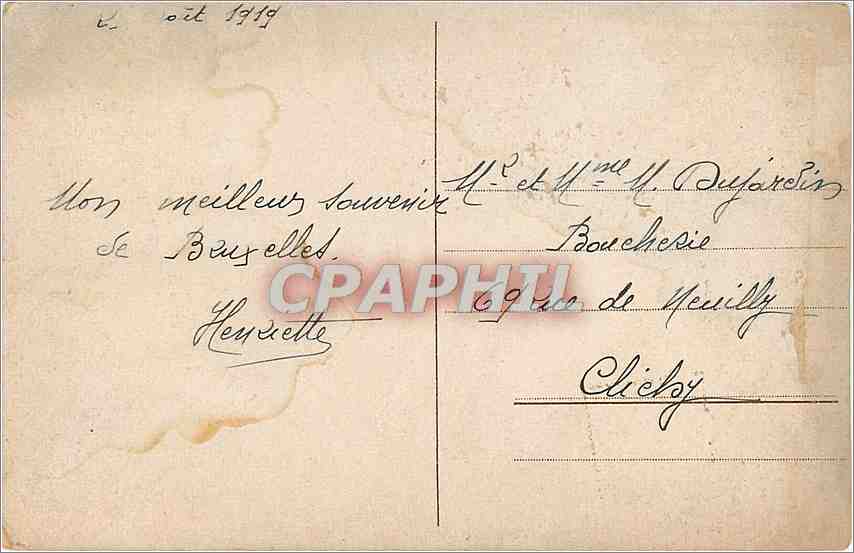 oût 1919
Mon meilleur souvenir
de Bruxelles.
Henriette
Mr et Mme M. Dujardin
Boucherie
69 rue de Neuilly
Clichy
CPAPHIL